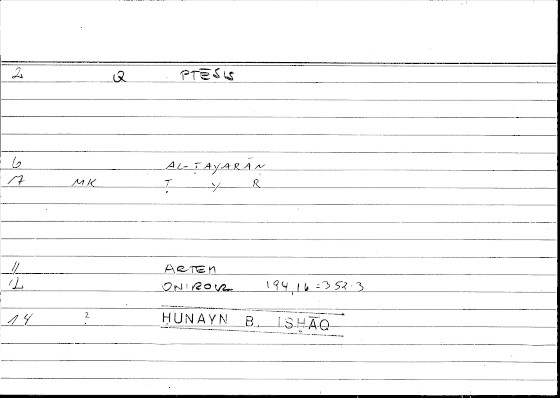 2 Q PTĒSIS
6 AL-ṬAYARĀN
7 MK Ṭ Y R
11 ARTEM
12 ONIROCR 194,16 = 352.3
14 ? ḤUNAYN B. ISḤĀQ